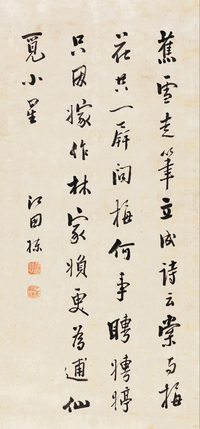 蕉雪走筆立成詩云棠与梅
花共一缾問梅何事聘娉婷
只因嫁作林家婦更為逋仙
覓小星